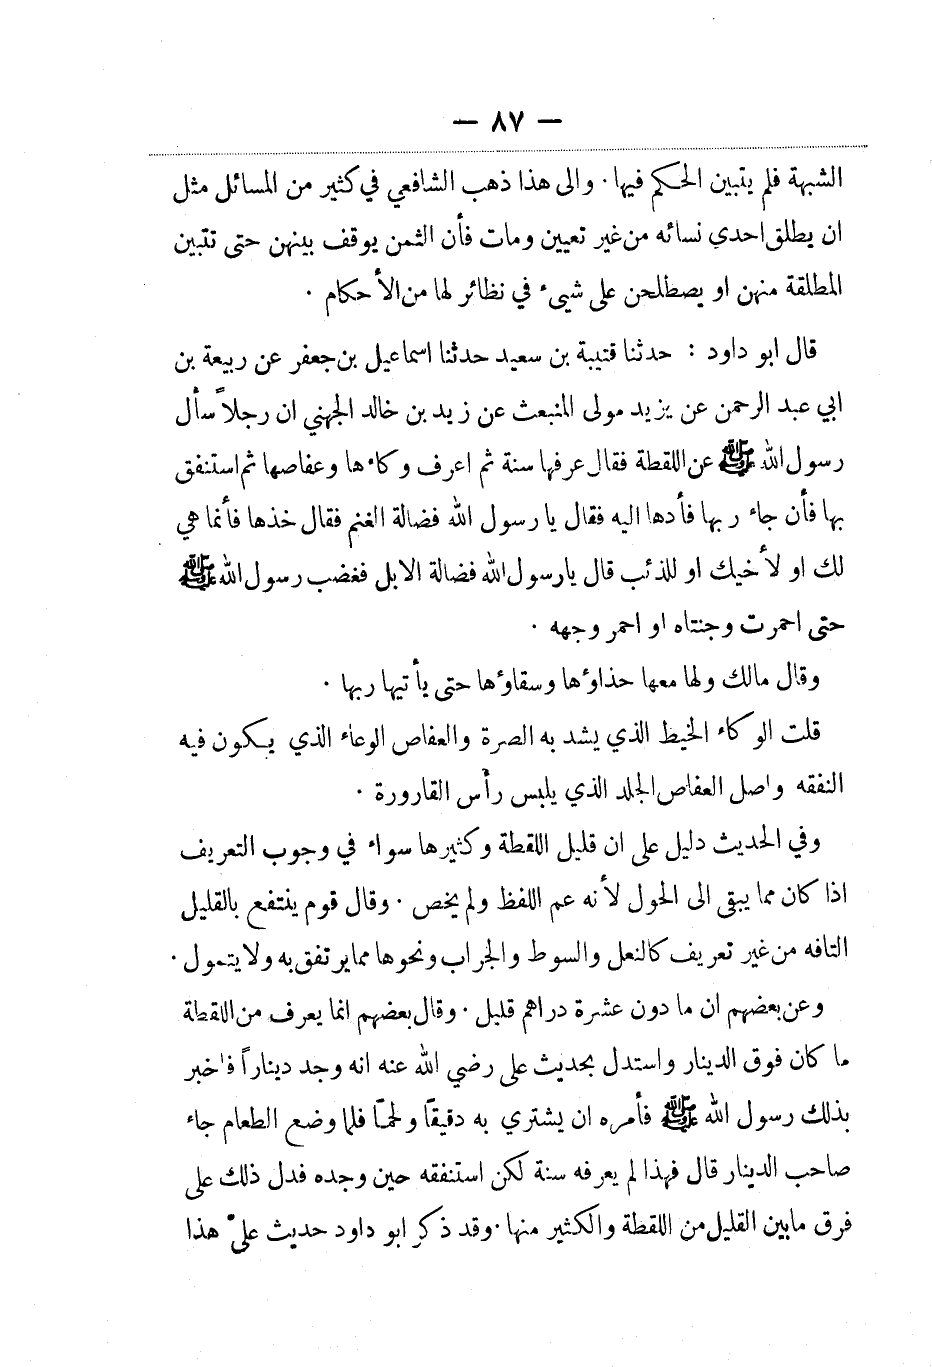 — ٨٧ —
الشبهة فلم يتبين الحكم فيها · والى هذا ذهب الشافعي في كثير من المسائل مثل
ان يطلق احدي نسائه من غير تعيين ومات فأن الثمن يوقف بينهن حتى تتبين
المطلقة منهن او يصطلحن على شيىء في نظائر لها من الأحكام ·
قال ابو داود : حدثنا قتيبة بن سعيد حدثنا اسماعيل بن جعفر عن ربيعة بن
ابي عبد الرحمن عن يزيد مولى المنبعث عن زيد بن خالد الجهني ان رجلاً سأل
رسول الله ﷺ عن اللقطة فقال عرفها سنة ثم اعرف وكاءها وعفاصها ثم استنفق
بها فأن جاء ربها فأدها اليه فقال يا رسول الله فضالة الغنم فقال خذها فأنما هي
لك او لأخيك او للذئب قال يارسول الله فضالة الابل فغضب رسول الله ﷺ
حتى احمرت وجنتاه او احمر وجهه ·
وقال مالك ولها معها حذاؤها وسقاؤها حتى يأتيها ربها ·
قلت الوكاء الخيط الذي يشد به الصرة والعفاص الوعاء الذي يكون فيه
النفقه واصل العفاص الجلد الذي يلبس رأس القارورة ·
وفي الحديث دليل على ان قليل اللقطة وكثيرها سواء في وجوب التعريف
اذا كان مما يبقى الى الحول لأنه عم اللفظ ولم يخص · وقال قوم ينتفع بالقليل
التافه من غير تعريف كالنعل والسوط والجراب ونحوها مما يرتفق به ولا يتمول ·
وعن بعضهم ان ما دون عشرة دراهم قليل · وقال بعضهم انما يعرف من اللقطة
ما كان فوق الدينار واستدل بحديث على رضي الله عنه انه وجد ديناراً فأخبر
بذلك رسول الله ﷺ فأمره ان يشتري به دقيقاً ولحماً فلما وضع الطعام جاء
صاحب الدينار قال فهذا لم يعرفه سنة لكن استنفقه حين وجده فدل ذلك على
فرق مابين القليل من اللقطة والكثير منها · وقد ذكر ابو داود حديث عليّ هذا